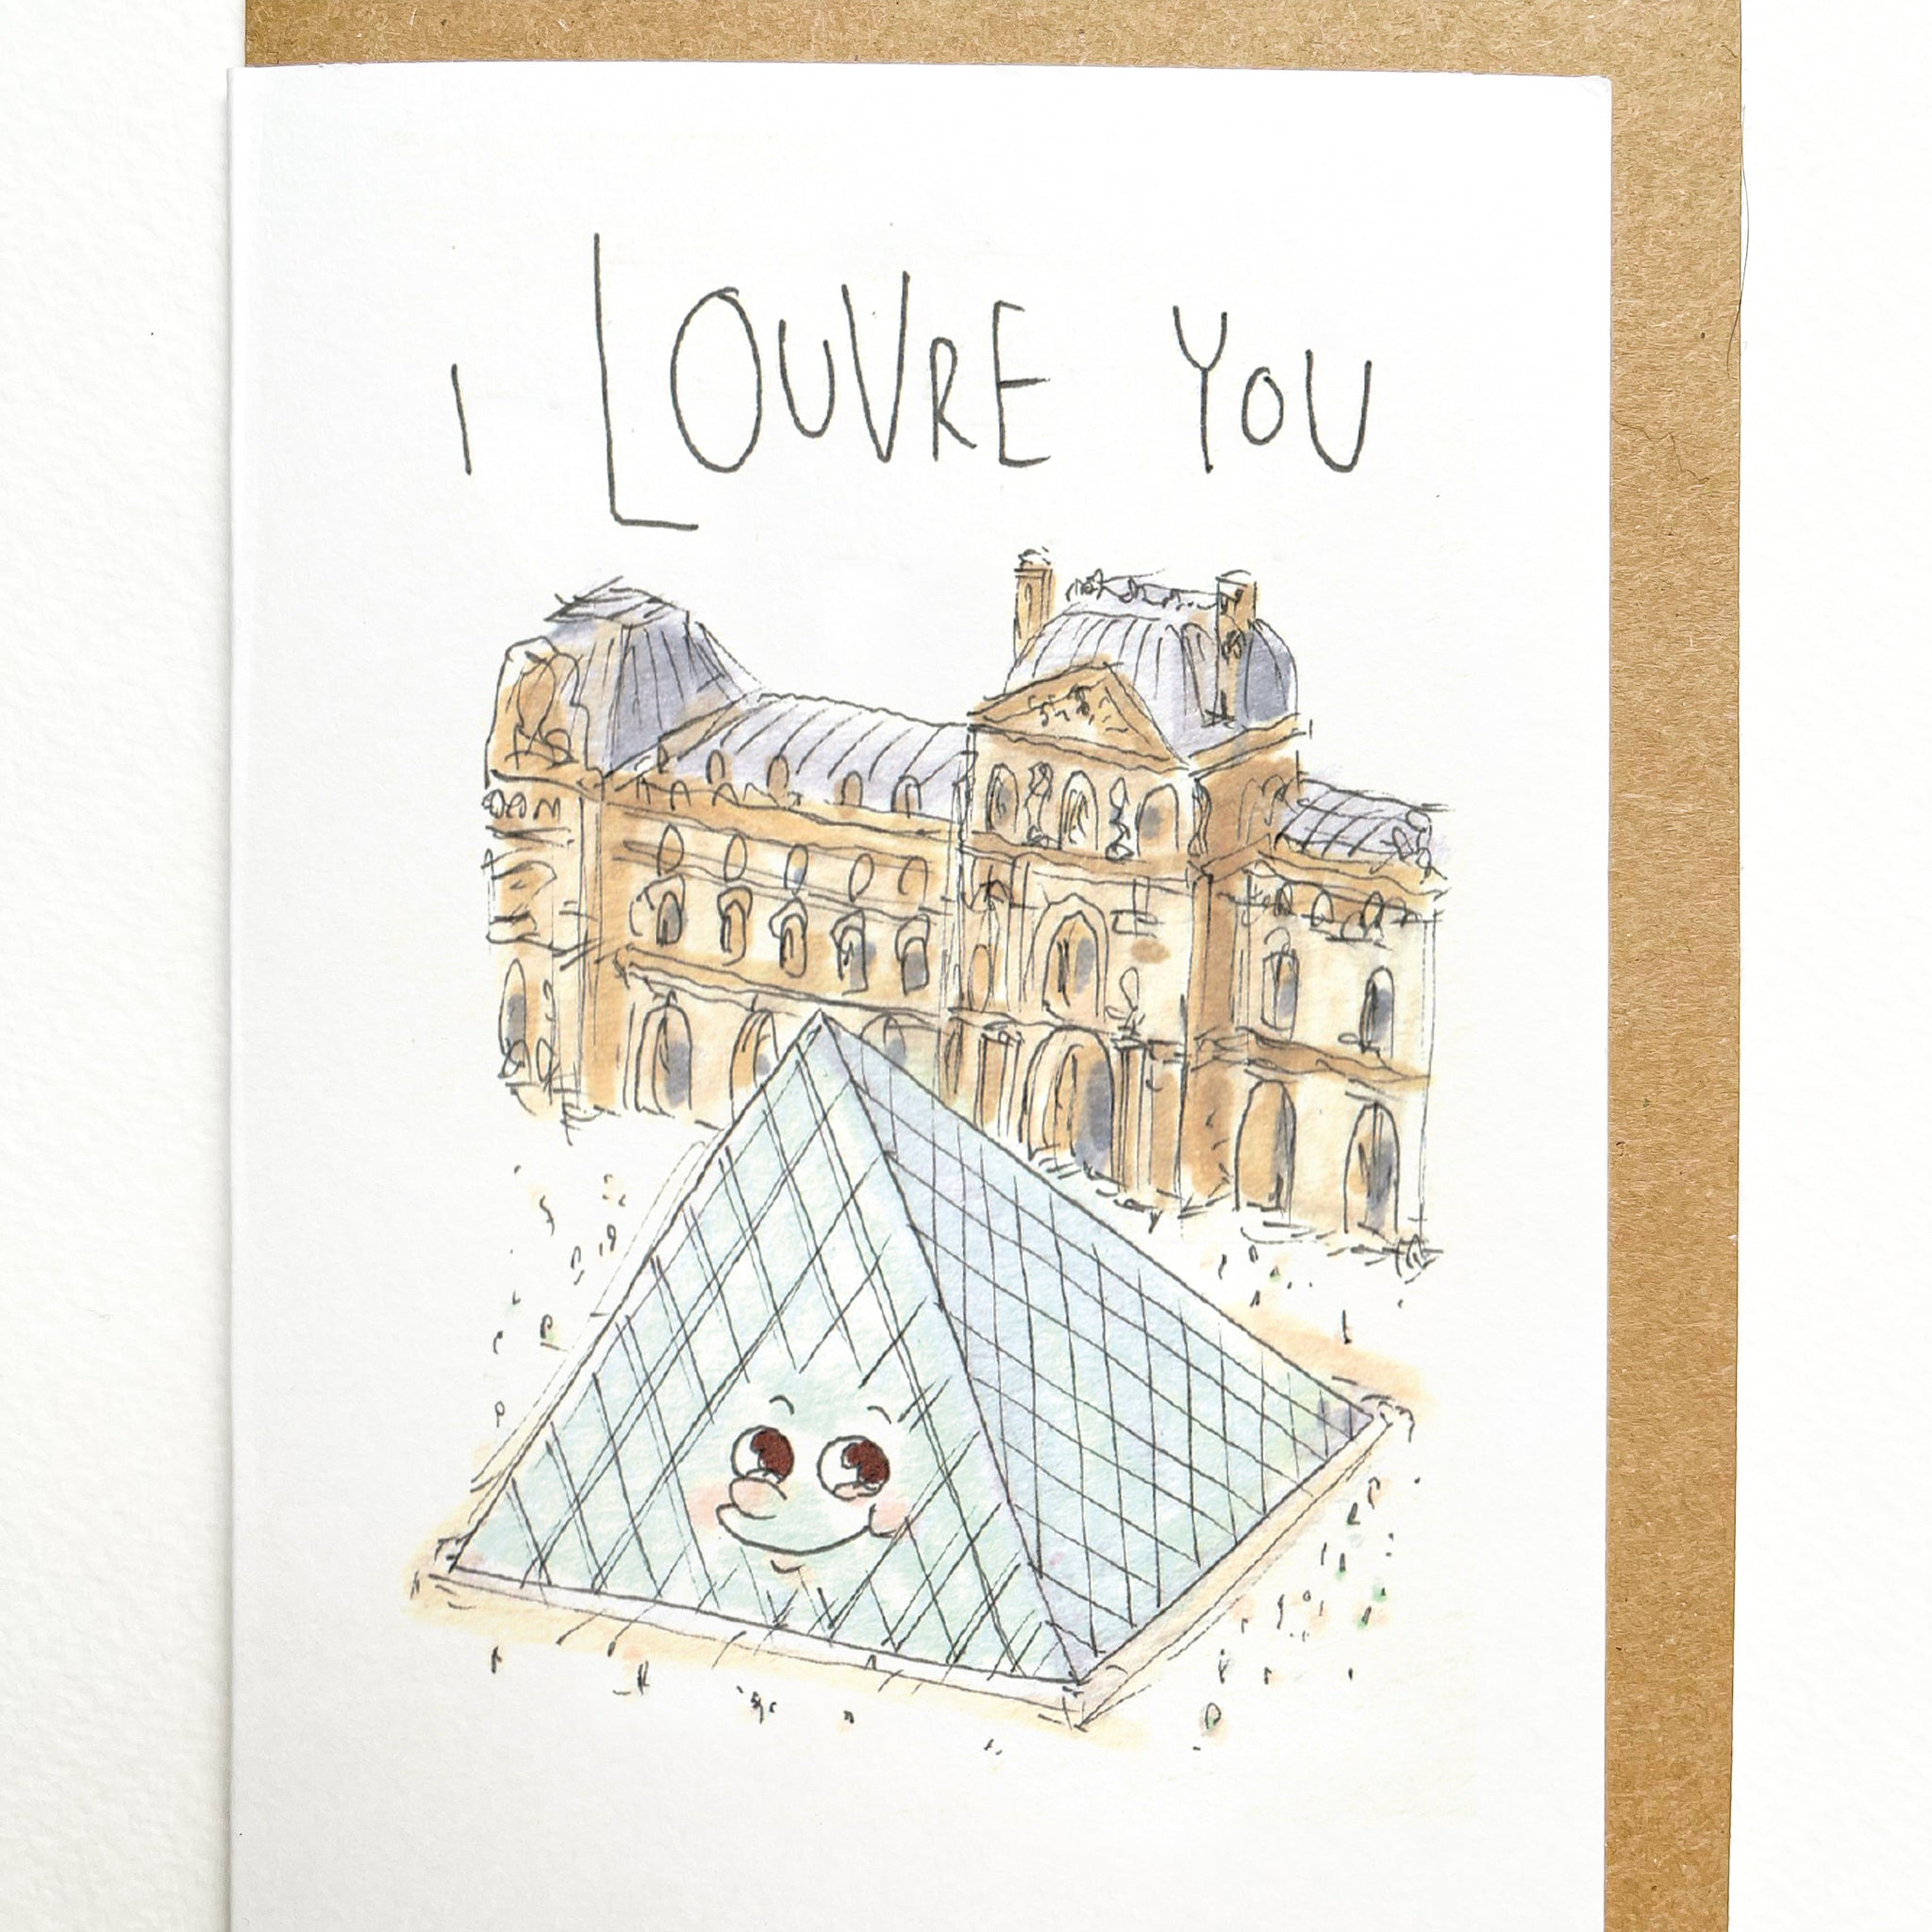 I LOUVRE YOU